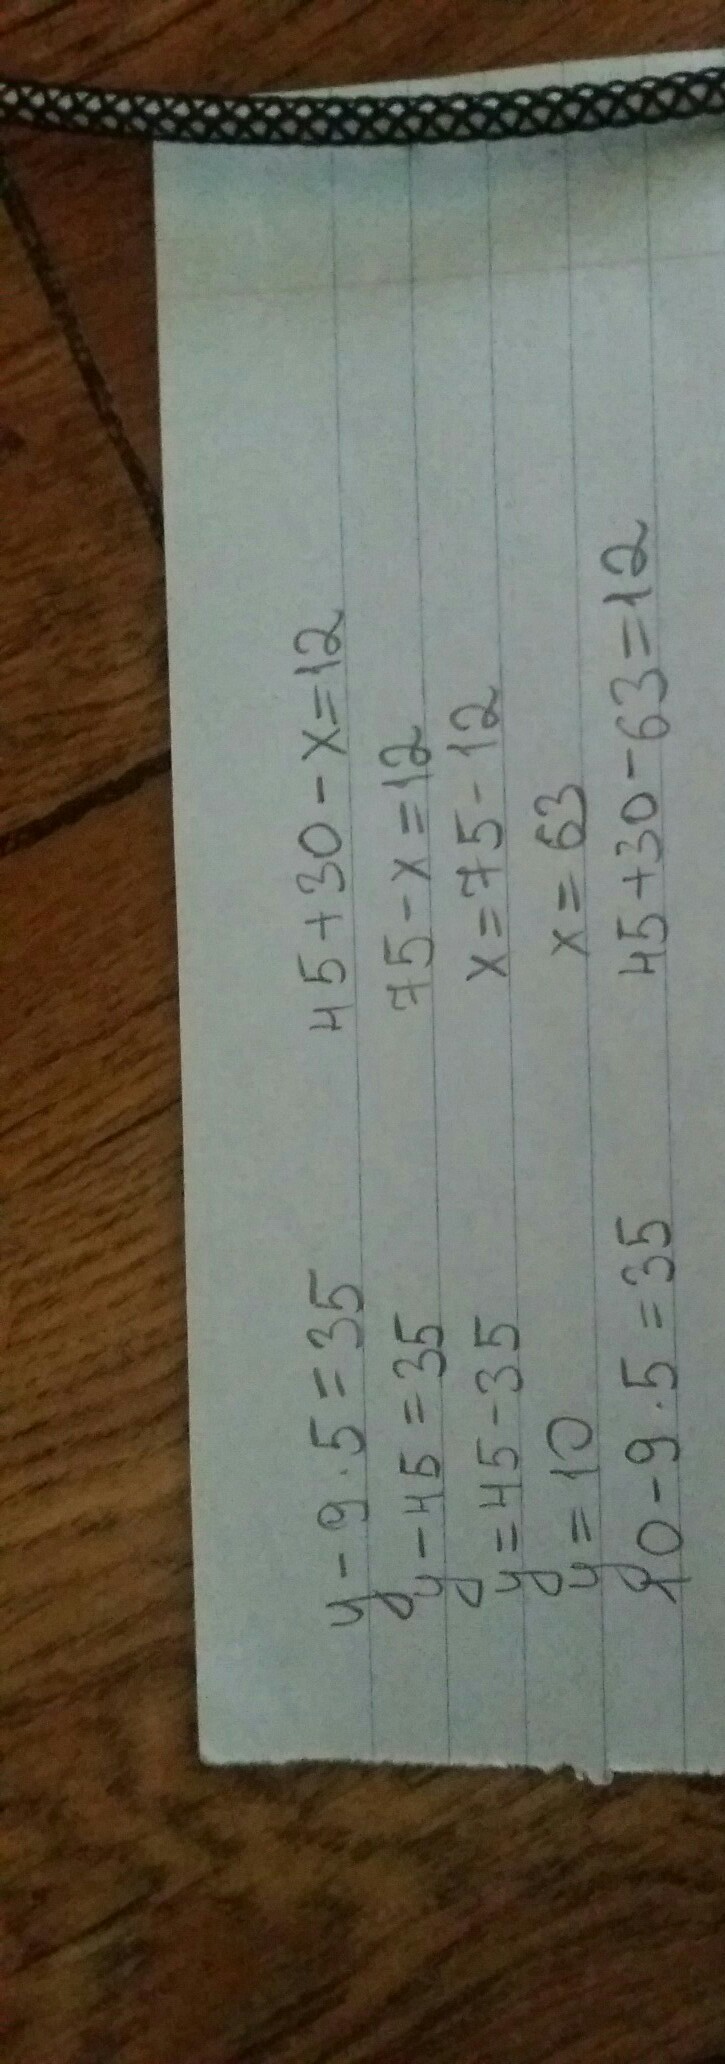 y - 9 · 5 = 35    45 + 30 - x = 12
y - 45 = 35    75 - x = 12
y = 45 - 35    x = 75 - 12
y = 10    x = 63
10 - 9 · 5 = 35    45 + 30 - 63 = 12